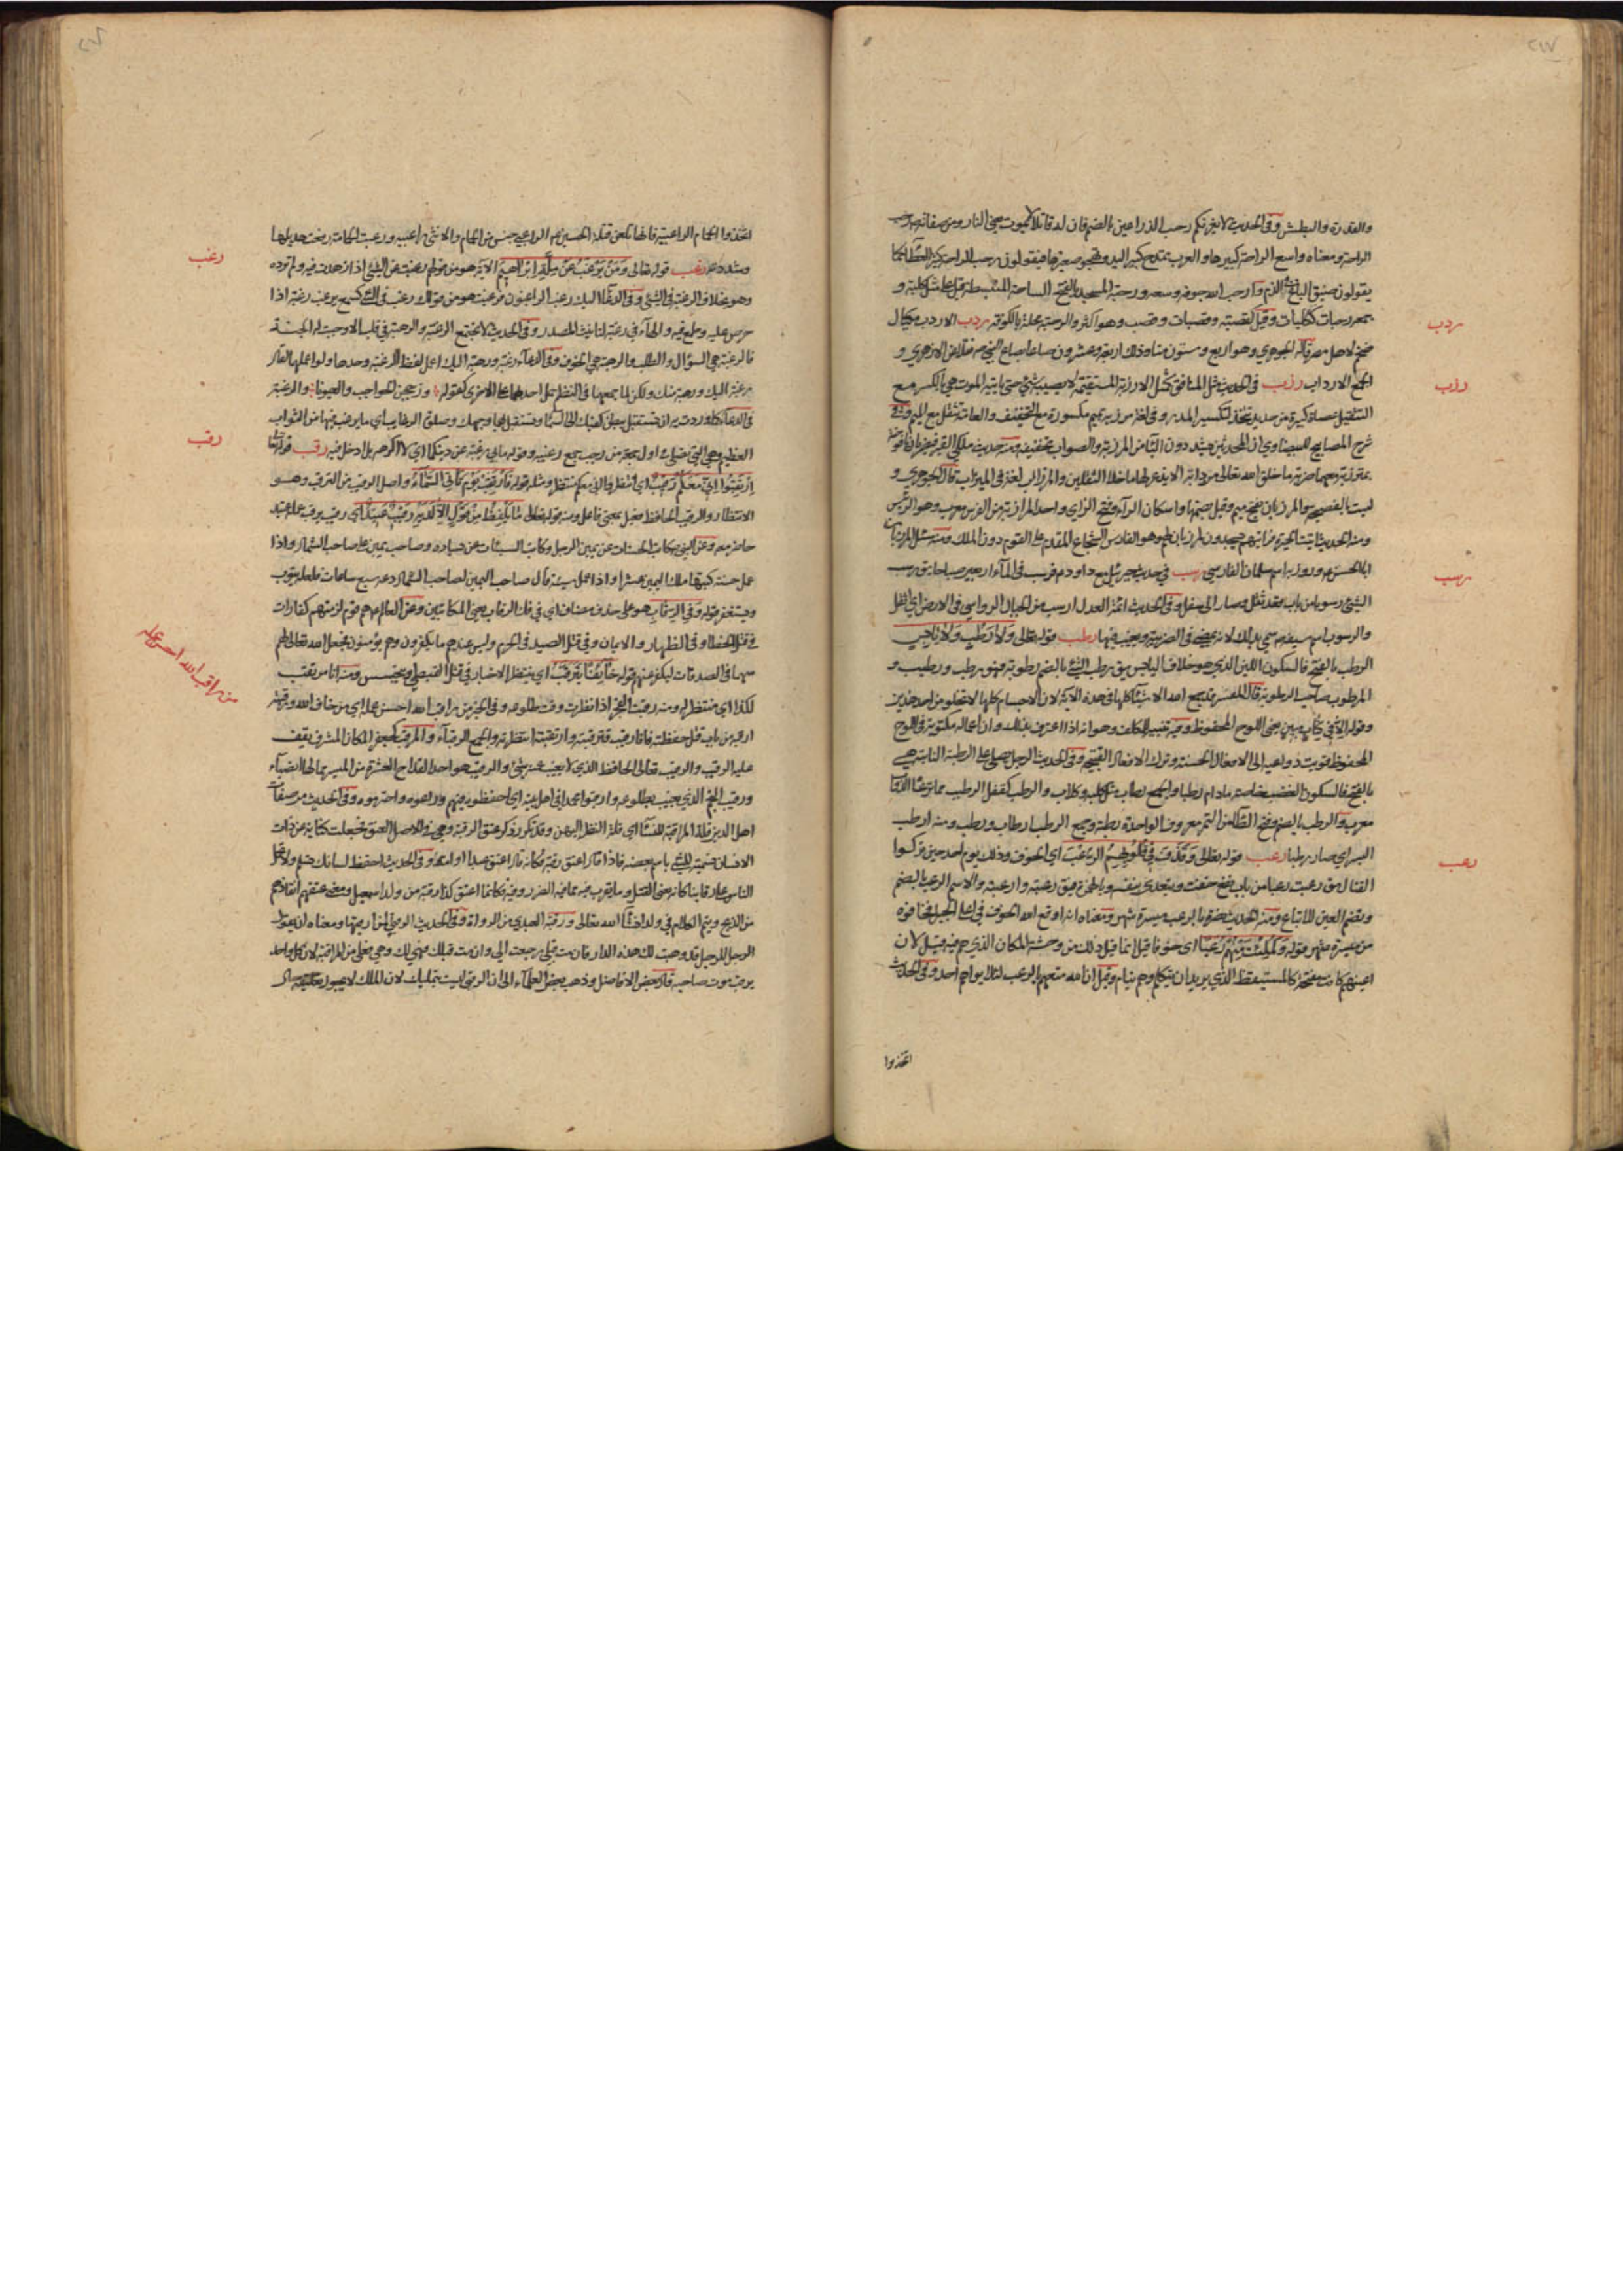 والقدرة والبطش وفى الحديث لا يغرنكم رحب الذراعين بالضم فان له قاتلا لا يموت يعنى النار ومن صفاته رحب
الراحة ومعناه واسع الراحة كبيرها والعرب تمدح كبير اليد وتهجو صغيرها فيقولون رحب الراحة كثير العطاء كما
يقولون ضيق الباع فى الذم وارحب الله جوفه وسعه ورحبة المسجد بالفتح الساحة المنبسطة قيل على مثل كلبة و
جمعه رحبات ككلبات وقيل كقصبة وقصبات وقصب وهو اكثر والرحبة محلة بالكوفة ردب الاردب مكيال
ضخم لاهل مصر قاله الجوهري وهو اربع وستون منا وذلك اربعة وعشرون صاعا بصاع النبي ص نقلا عن الازهري و
الجمع الارداب رزب فى الحديث مثل المنافق كمثل الارزبة المستقيمة لا يصيبه شئ حتى ياتيه الموت هي بالكسر مع
التثقيل عصاة كبيرة من حديد تتخذ لتكسير المدر وفى لغة مرزبة بميم مكسورة مع التخفيف والعامة تثقل مع الميم وفى
شرح المصابيح للبيضاوي ان المحدثين يشددون الباء من المرزبة والصواب تخفيفه ومنه حديث ملكي القبر فيضربان يافوخه
بمرزبة معهما ضربة ما خلق الله تعالى من دابة الا يذعر لها ما خلا الثقلين والمرزاب لغة فى الميزاب قال الجوهري و
ليست بالفصيحة والمرزبان بفتح ميم وقيل ضمها واسكان الراء وفتح الزاي واحد المرازبة من الفرس معرب وهو الرئيس
ومنه الحديث اتيت الحيرة فرايتهم يسجدون لمرزبان لهم وهو الفارس الشجاع المقدم على القوم دون الملك ومنه سئل المرزبان
ابا الحسن ع وروزبه اسم سلمان الفارسي رسب فى حديث جبرئيل مع داود ع فرسب فى الماء اربعين صباحا يق رسب
الشئ رسوبا من باب قعد ثقل وصار الى سفل وفى الحديث ائمة العدل ارسب من الجبال الرواسي فى الارض اي اثقل
والرسوب اسم سيفه ص سمي بذلك لانه يمضي فى الضريبة ويغيب فيها رطب قوله تعالى ولا رطب ولا يابس
الرطب بالفتح فالسكون اللين الذي هو خلاف اليابس يق رطب الشئ بالضم رطوبة فهو رطب ورطيب و
المرطوب صاحب الرطوبة قال المفسر قد جمع الله الاشياء كلها فى هذه الاية لان الاجسام كلها لا تخلو من احد هذين
وقوله الا فى كتاب مبين يعنى اللوح المحفوظ وفيه تنبيه للمكلف وهو انه اذا اعترف بذلك وان اعماله مكتوبة فى اللوح
المحفوظ قويت دواعيه الى الافعال الحسنة وترك الافعال القبيحة وفى الحديث الرجل يصلى على الرطبة النابتة هي
بالفتح فالسكون القضب خاصة مادام رطبا والجمع رطاب مثل كلبة وكلاب والرطب كقفل الرطيب مما ترعاه الدواب
معرب والرطب بالضم وفتح الطاء من التمر معروف الواحدة رطبة وجمع الرطب ارطاب ورطب ومنه ارطب
البسر اي صار رطبا رعب قوله تعالى وقذف فى قلوبهم الرعب اي الخوف وذلك يوم احد حين تركوا
القتال يق رعبت رعبا من باب نفع خفت ويتعدى بنفسه وبالهمزة فيق رعبته وارعبته والاسم الرعب بالضم
وتضم العين للاتباع ومنه الحديث نصرت بالرعب مسيرة شهر ومعناه انه اوقع الله الخوف فى اعداء النبي ص فخافوه
من مسيرة شهر وقوله ولملئت منهم رعبا اي خوفا قيل انما قيل ذلك من وحشة المكان الذي هم فيه وقيل لان
اعينهم كانت مفتحة كالمستيقظ الذي يريد ان يتكلم وهم نيام وقيل ان الله منعهم بالرعب لئلا يراهم احد وفى الحديث
اتخذوا
ردب
رزب
رسب
رعب
اتخذوا الحمام الراعبية فانها تلعن قتلة الحسين ع هم الراعبي جنس من الحمام والانثى راعبيه ورعبت الحمامة رفعت هديلها
وشددته رغب قوله تعالى ومن يرغب عن ملة ابراهيم الاية هو من قولهم رغبت عن الشئ اذا زهدت فيه ولم ترده
وهو بخلاف الرغبة فى الشئ وفى الدعاء اليك رغب الراغبون فرغبت هو من قولك رغب فى الشئ كسمع يرغب رغبة اذا
حرص عليه وطمع فيه والهاء فى رغبة لتانيث المصدر وفى الحديث لا تجتمع الرغبة والرهبة فى قلب الا وجبت له الجنة
فالرغبة هي السؤال والطلب والرهبة هي الخوف وفى الدعاء رغبة ورهبة اليك اعمل لفظ الرغبة وحدها ولو اعملهما لقال
رغبة اليك ورهبة منك ولكن لما جمعهما فى النظم حمل احدهما على الاخرى كقوله وزججن الحواجب والعيونا والرغبة
فى الدعاء كما وردت به ان تستقبل ببطن كفيك الى السماء وتستقبل بهما وجهك وصلوة الرغايب اي ما يرغب فيها من الثواب
العظيم وهي التى تصلى فى اول جمعة من رجب جمع رغيبه وقوله ما بي رغبة عن دينكما اي لا اكرهه بل ادخل فيه رقب قوله تعالى
ارتقبوا انى معكم رقيب اي انتظروا انى معكم منتظر ومثله قوله فارتقب يوم تاتى السماء واصل الرقيب من الترقب وهو
الانتظار والرقيب الحافظ فعيل بمعنى فاعل ومنه قوله تعالى ما يلفظ من قول الا لديه رقيب عتيد اي رقيب يرقب عمله عتيد
حاضر معه وعن النبي ص كاتب الحسنات عن يمين الرجل وكاتب السيئات عن يساره وصاحب اليمين على صاحب الشمال واذا
عمل حسنة كتبها ملك اليمين عشرا واذا عمل سيئة قال صاحب اليمين لصاحب الشمال دعه سبع ساعات فلعله يتوب
ويستغفر قوله وفى الرقاب هو على حذف مضاف اي فى فك الرقاب يعنى المكاتبين وعن العالم ع هم قوم لزمتهم كفارات
فى قتل الخطا وفى الظهار والايمان وفى قتل الصيد فى الحرم وليس عندهم ما يكفرون وهم مؤمنون فجعل الله تعالى لهم
سهما فى الصدقات ليكفر عنهم قوله خائفا يترقب اي ينتظر الاخبار فى قتل القبطي ويتجسس ومنه انا مرتقب
لكذا اي منتظر له ومنه رقبت الفجر اذا نظرت وقت طلوعه وفى الخبر من راقب الله احسن عمله اي من خاف الله ورقبته
ارقبه من باب قتل حفظته فانا رقيب وترقبته وارتقبته انتظرته والجمع الرقباء والمرقب كجعفر المكان المشرف يقف
عليه الرقيب والرقيب تعالى الحافظ الذي لا يغيب عنه شئ والرقيب هو احد القداح العشرة من الميسر مما لها انصباء
ورقيب النجم الذي يغيب بطلوعه وارقبوا محمدا فى اهل بيته اي احفظوه فيهم وراعوه واحترموه وفى الحديث من صفات
اهل الدين قلة المراقبة للنساء اي قلة النظر اليهن وقد تكرر ذكر عتق الرقبة وهي فى الاصل العنق فجعلت كناية عن ذات
الانسان تسمية للشئ باسم بعضه فاذا قال اعتق رقبة فكانه قال اعتق عبدا او امة وفى الحديث احفظ لسانك تسلم ولا تحمل
الناس على رقابنا كانه يعنى القتل وما يقرب منه مما فيه الضرر وفيه فكانما اعتق كذا رقبة من ولد اسمعيل ومعنى عتقهم انقاذهم
من الذبح ويتم الكلام فى ولد انشاء الله تعالى ورقبة العبدي من الرواة وفى الحديث الرقبى لمن ارقبها ومعناه ان يقول
الرجل للرجل قد وهبت لك هذه الدار فان مت قبلى رجعت الى وان مت قبلك فهي لك وهي فعلى من المراقبة لان كل واحد
يرقب موت صاحبه قال بعض الافاضل وذهب بعض العلماء الى ان الرقبى ليست بتمليك لان الملك لا يجوز تعليقه
رغب
رقب
من راقب الله احسن عمله